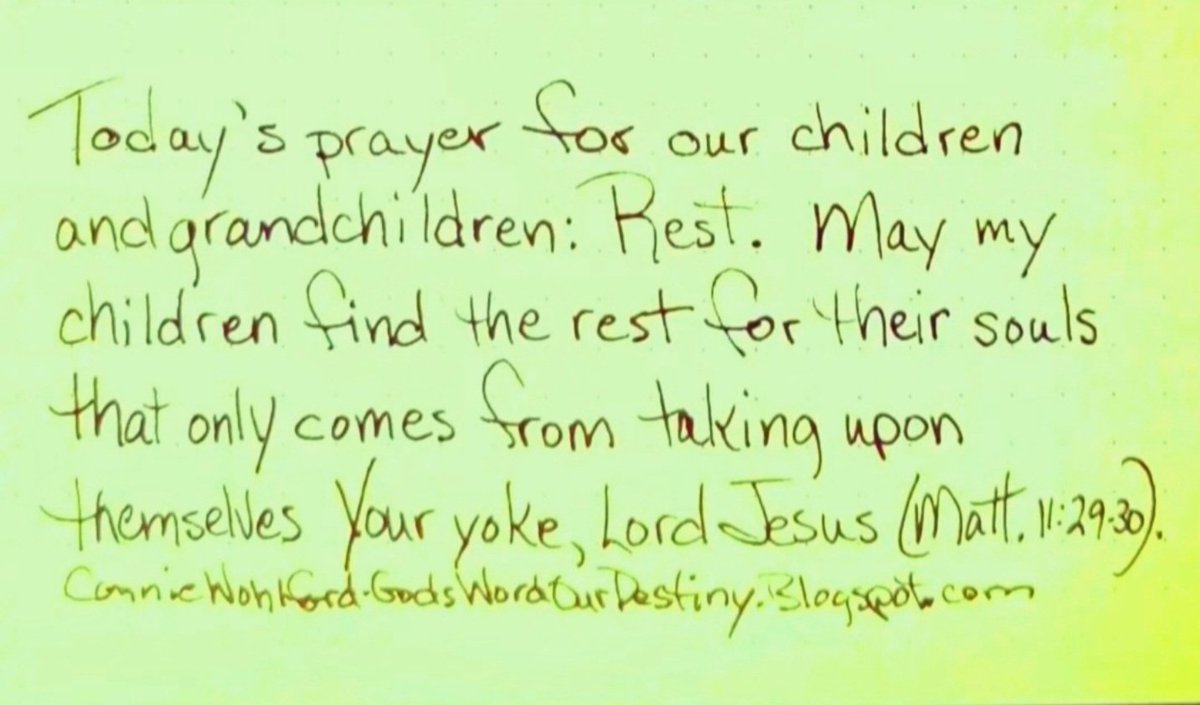 Today's prayer for our children
and grandchildren: Rest. May my
children find the rest for their souls
that only comes from taking upon
themselves Your yoke, Lord Jesus (Matt. 11:29-30).
ConnieWohlford-GodsWordOurDestiny.Blogspot.com